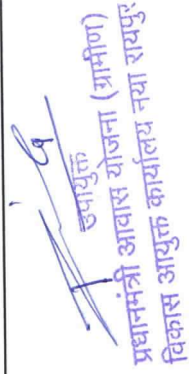 उपायुक्त
प्रधानमंत्री आवास योजना (ग्रामीण)
विकास आयुक्त कार्यालय नया रायपुर